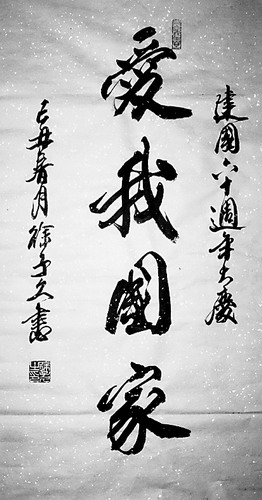 建國六十週年大慶
愛我國家
己丑春月徐子久書